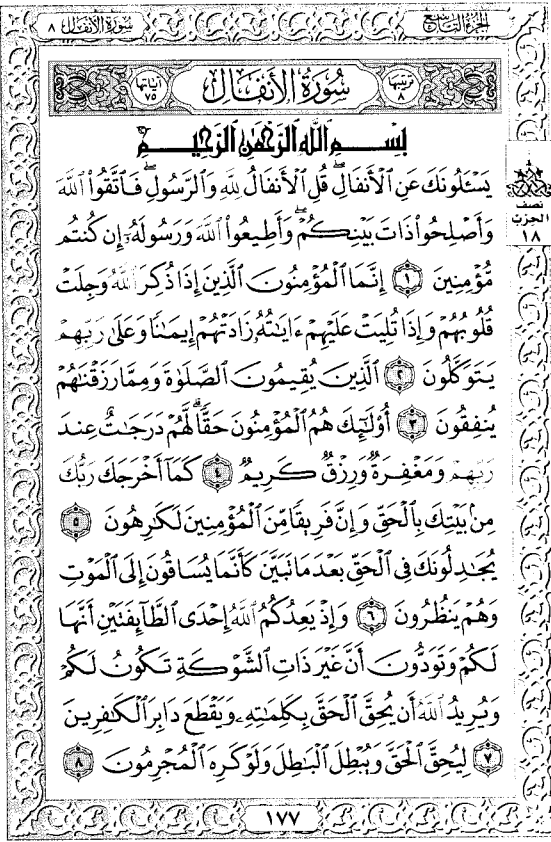 سُورَةُ الأَنفَال ٨
الجُزءُ التَّاسِع
سُورَةُ الأَنفَال
ترتيبها ٨
آياتها ٧٥
بِسْمِ اللَّهِ الرَّحْمَٰنِ الرَّحِيمِ
يَسْـَٔلُونَكَ عَنِ ٱلْأَنفَالِۖ قُلِ ٱلْأَنفَالُ لِلَّهِ وَٱلرَّسُولِۖ فَٱتَّقُوا۟ ٱللَّهَ
وَأَصْلِحُوا۟ ذَاتَ بَيْنِكُمْۖ وَأَطِيعُوا۟ ٱللَّهَ وَرَسُولَهُۥٓ إِن كُنتُم
مُّؤْمِنِينَ ١ إِنَّمَا ٱلْمُؤْمِنُونَ ٱلَّذِينَ إِذَا ذُكِرَ ٱللَّهُ وَجِلَتْ
قُلُوبُهُمْ وَإِذَا تُلِيَتْ عَلَيْهِمْ ءَايَٰتُهُۥ زَادَتْهُمْ إِيمَٰنًا وَعَلَىٰ رَبِّهِمْ
يَتَوَكَّلُونَ ٢ ٱلَّذِينَ يُقِيمُونَ ٱلصَّلَوٰةَ وَمِمَّا رَزَقْنَٰهُمْ
يُنفِقُونَ ٣ أُو۟لَٰٓئِكَ هُمُ ٱلْمُؤْمِنُونَ حَقًّاۚ لَّهُمْ دَرَجَٰتٌ عِندَ
رَبِّهِمْ وَمَغْفِرَةٌ وَرِزْقٌ كَرِيمٌ ٤ كَمَآ أَخْرَجَكَ رَبُّكَ
مِنۢ بَيْتِكَ بِٱلْحَقِّ وَإِنَّ فَرِيقًا مِّنَ ٱلْمُؤْمِنِينَ لَكَٰرِهُونَ ٥
يُجَٰدِلُونَكَ فِى ٱلْحَقِّ بَعْدَ مَا تَبَيَّنَ كَأَنَّمَا يُسَاقُونَ إِلَى ٱلْمَوْتِ
وَهُمْ يَنظُرُونَ ٦ وَإِذْ يَعِدُكُمُ ٱللَّهُ إِحْدَى ٱلطَّآئِفَتَيْنِ أَنَّهَا
لَكُمْ وَتَوَدُّونَ أَنَّ غَيْرَ ذَاتِ ٱلشَّوْكَةِ تَكُونُ لَكُمْ
وَيُرِيدُ ٱللَّهُ أَن يُحِقَّ ٱلْحَقَّ بِكَلِمَٰتِهِۦ وَيَقْطَعَ دَابِرَ ٱلْكَٰفِرِينَ
٧ لِيُحِقَّ ٱلْحَقَّ وَيُبْطِلَ ٱلْبَٰطِلَ وَلَوْ كَرِهَ ٱلْمُجْرِمُونَ ٨
نصف
الحزب
١٨
١٧٧